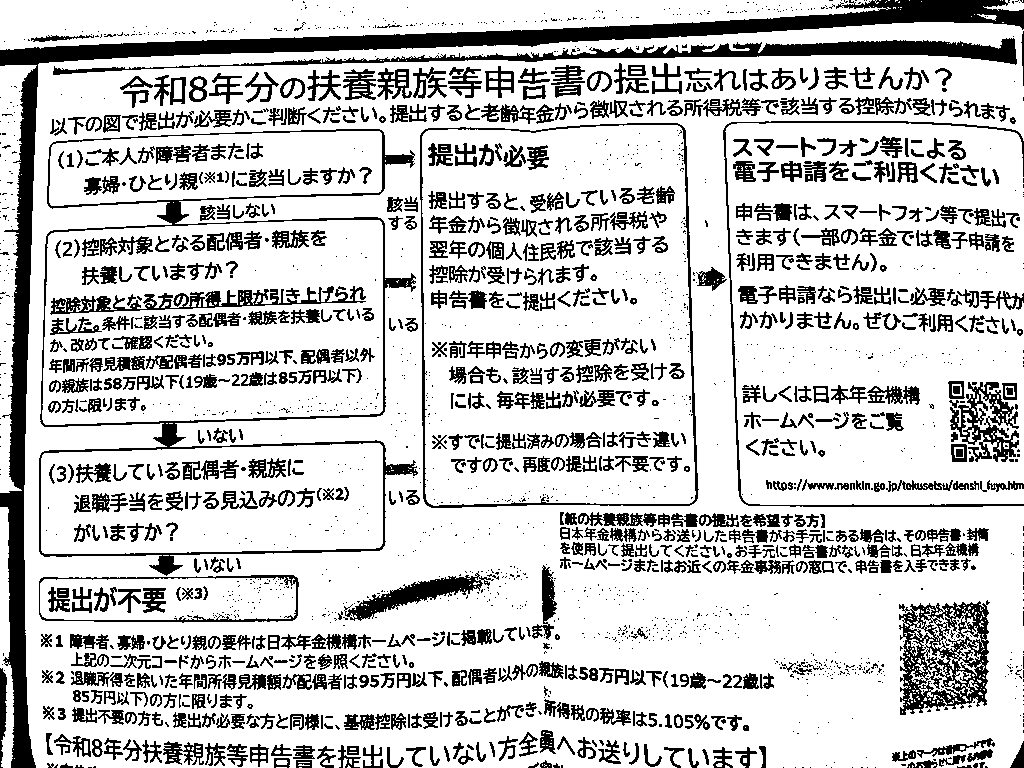 のお知らせ)
令和8年分の扶養親族等申告書の提出忘れはありませんか?
以下の図で提出が必要かご判断ください。提出すると老齢年金から徴収される所得税等で該当する控除が受けられます。
(1)ご本人が障害者または
寡婦・ひとり親(※1)に該当しますか?
該当しない
該当
する
(2)控除対象となる配偶者・親族を
扶養していますか?
控除対象となる方の所得上限が引き上げられ
ました。条件に該当する配偶者・親族を扶養している
か、改めてご確認ください。
年間所得見積額が配偶者は95万円以下、配偶者以外
の親族は58万円以下(19歳~22歳は85万円以下)
の方に限ります。
いる
いない
(3)扶養している配偶者・親族に
退職手当を受ける見込みの方(※2)
がいますか?
いる
いない
提出が不要(※3)
提出が必要
提出すると、受給している老齢
年金から徴収される所得税や
翌年の個人住民税で該当する
控除が受けられます。
申告書をご提出ください。
※前年申告からの変更がない
場合も、該当する控除を受ける
には、毎年提出が必要です。
※すでに提出済みの場合は行き違い
ですので、再度の提出は不要です。
スマートフォン等による
電子申請をご利用ください
申告書は、スマートフォン等で提出で
きます(一部の年金では電子申請を
利用できません)。
電子申請なら提出に必要な切手代が
かかりません。ぜひご利用ください。
詳しくは日本年金機構
ホームページをご覧
ください。
https://www.nenkin.go.jp/tokusetsu/denshi_fuyo.htm
【紙の扶養親族等申告書の提出を希望する方】
日本年金機構からお送りした申告書がお手元にある場合は、その申告書・封筒
を使用して提出してください。お手元に申告書がない場合は、日本年金機構
ホームページまたはお近くの年金事務所の窓口で、申告書を入手できます。
※1 障害者、寡婦・ひとり親の要件は日本年金機構ホームページに掲載しています。
上記の二次元コードからホームページを参照ください。
※2 退職所得を除いた年間所得見積額が配偶者は95万円以下、配偶者以外の親族は58万円以下(19歳~22歳は
85万円以下)の方に限ります。
※3 提出不要の方も、提出が必要な方と同様に、基礎控除は受けることができ、所得税の税率は5.105%です。
【令和8年分扶養親族等申告書を提出していない方全員へお送りしています】
※上のマークは音声コードです。